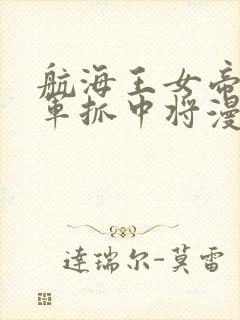 航海王女帝
军抓中将漫
达瑞尔-莫雷